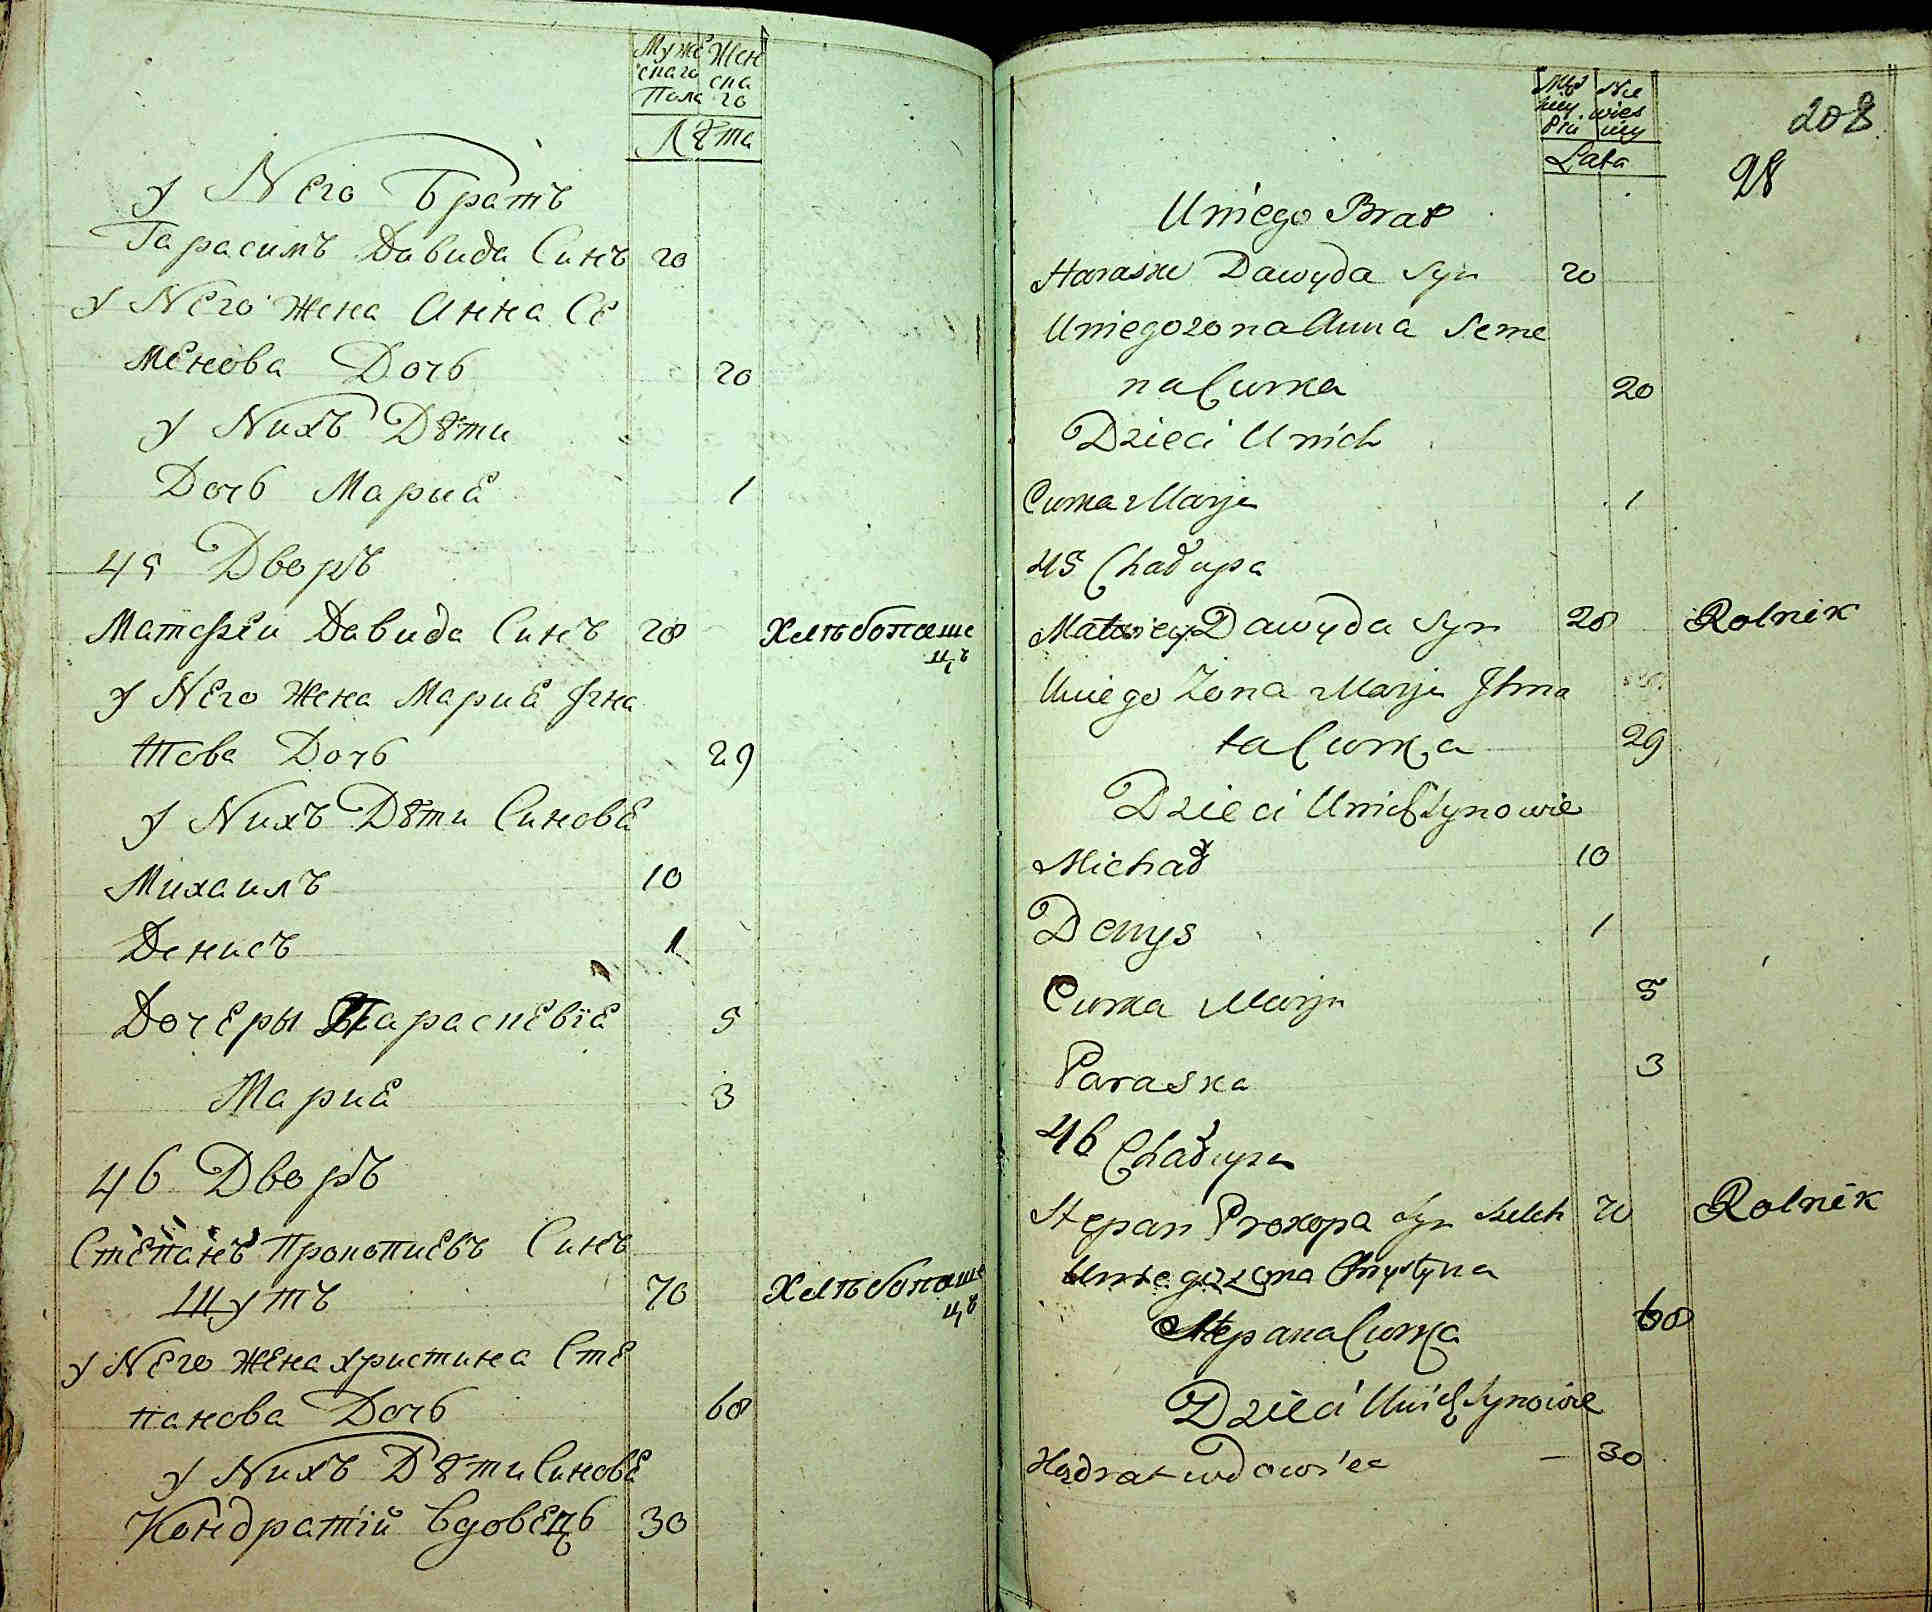 Мужескаго Пола
Женскаго
Лѣта
У Него Братъ
Гарасимъ Давида Синъ 20
У Него Жена Анна Се
менова Дочь 20
У Нихъ Дѣти
Дочь Мария 1
45 Дворъ
Матфѣи Давида Синъ 28 Хлѣбопаше
цъ
У Него Жена Мария Игна
това Дочь 29
У Нихъ Дѣти Синове
Михаилъ 10
Денисъ 1
Дочеры Параскевiя 5
Мария 3
46 Дворъ
Степанъ Прокопиевъ Синъ
Шутъ 70 Хлѣбопаше
цъ
У Него Жена Христина Сте
панова Дочь 68
У Нихъ Дѣти Синове
Кондратiй Вдовецъ 30
208
98
Lata
Uniego Brat
Haraska Dawyda Syn 20
Uniego zona Anna Seme
na Curka 20
Dzieci Unich
Curka Marja 1
45 Chałupa
Matwiey Dawyda Syn 28 Rolnik
Uniego Żona Marja Ihna
ta Curka 29
Dzieci Unich Synowie
Michał 10
Denys 1
Curka Marja 5
Paraska 3
46 Chałupa
Stepan Prokopa Syn 70 Rolnik
Uniego zona Chrystyna
Stepana Curka 68
Dzieci Unich Synowie
Kądrat wdowiec 30